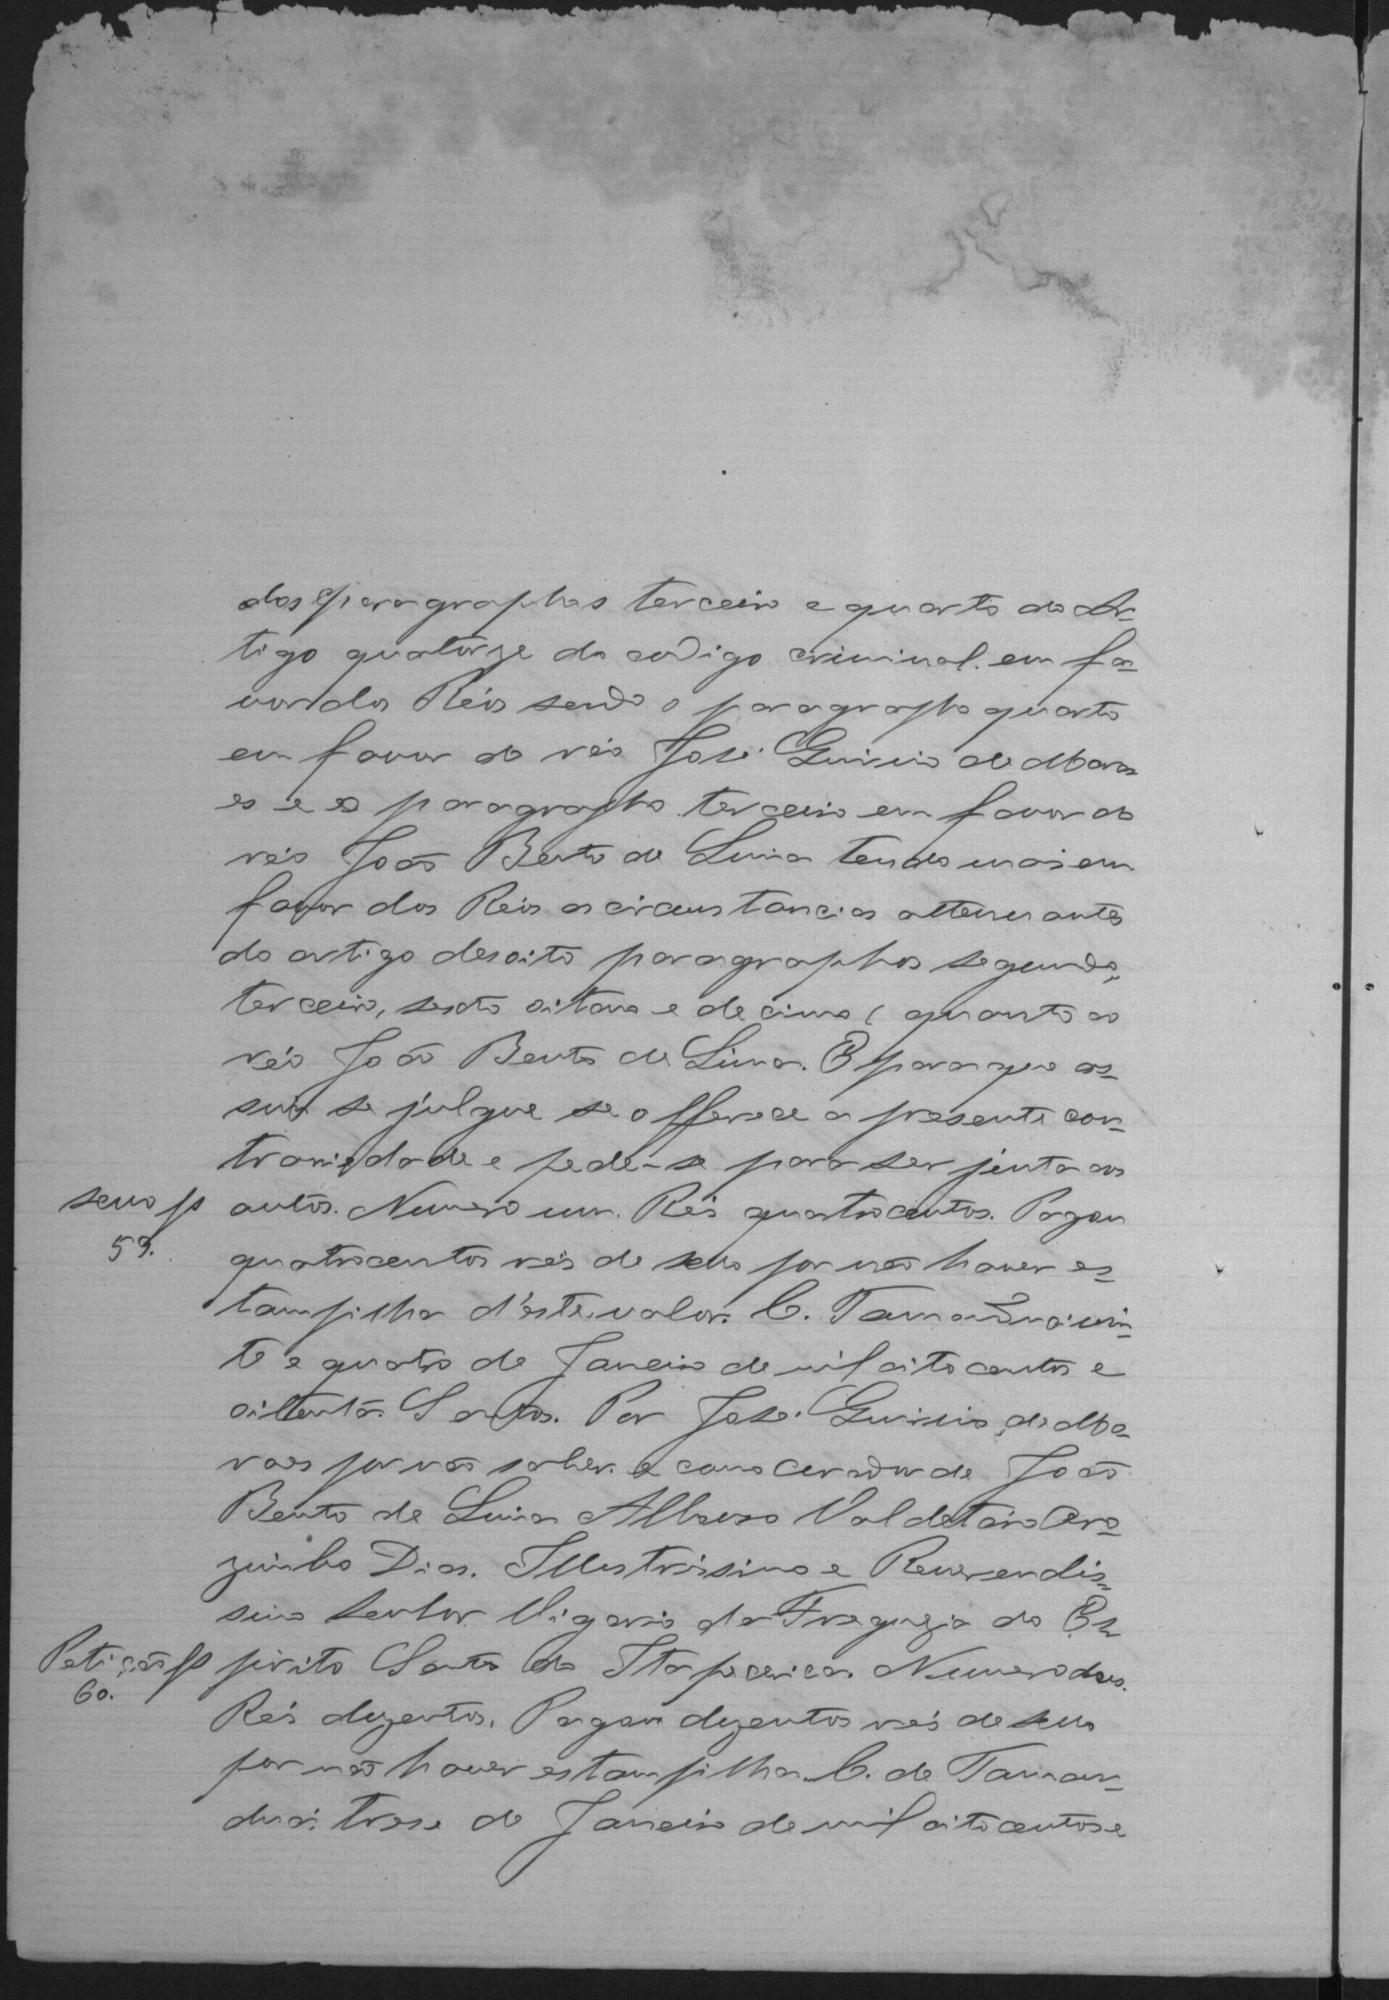 dos paragraphos terceiro e quarto do Ar-
tigo quatorze do codigo criminal em fa-
vor dos Réos sendo o paragrapho quarto
em favor do réo José Quirino de Mora
es e o paragrapho terceiro em favor do
réo João Bento de Lima tendo mais em
favor dos Reos as circunstancias attenuantes
do artigo desoito paragraphos segundo,
terceiro, sexto oitavo e decimo (quanto ao
réo João Bento de Lima. E para que as-
sim se julgue se offerece a presente con-
trariedade e pede-se para ser junta aos
sello fs autos. Numero um. Reis quatrocentos. Pagou
59. quatrocentos reis de sello por não haver es-
tampilha d'este valor. C. Tamanduá vin-
te e quatro de Janeiro de mil oito centos e
oitenta. Santos. Por José Quirino de Mo-
raes por não saber e como curador de João
Bento de Lima Valdetaro
Dias. Illustrissimo e Reverendis-
simo Senhor Vigario da Freguezia do Es
Petição fs pirito Santo da Itapecerica. Numero dous.
60. Reis duzentos. Pagou duzentos reis de sello
por não haver estampilha. C. de Taman-
duá. trese de Janeiro de mil oito centos e